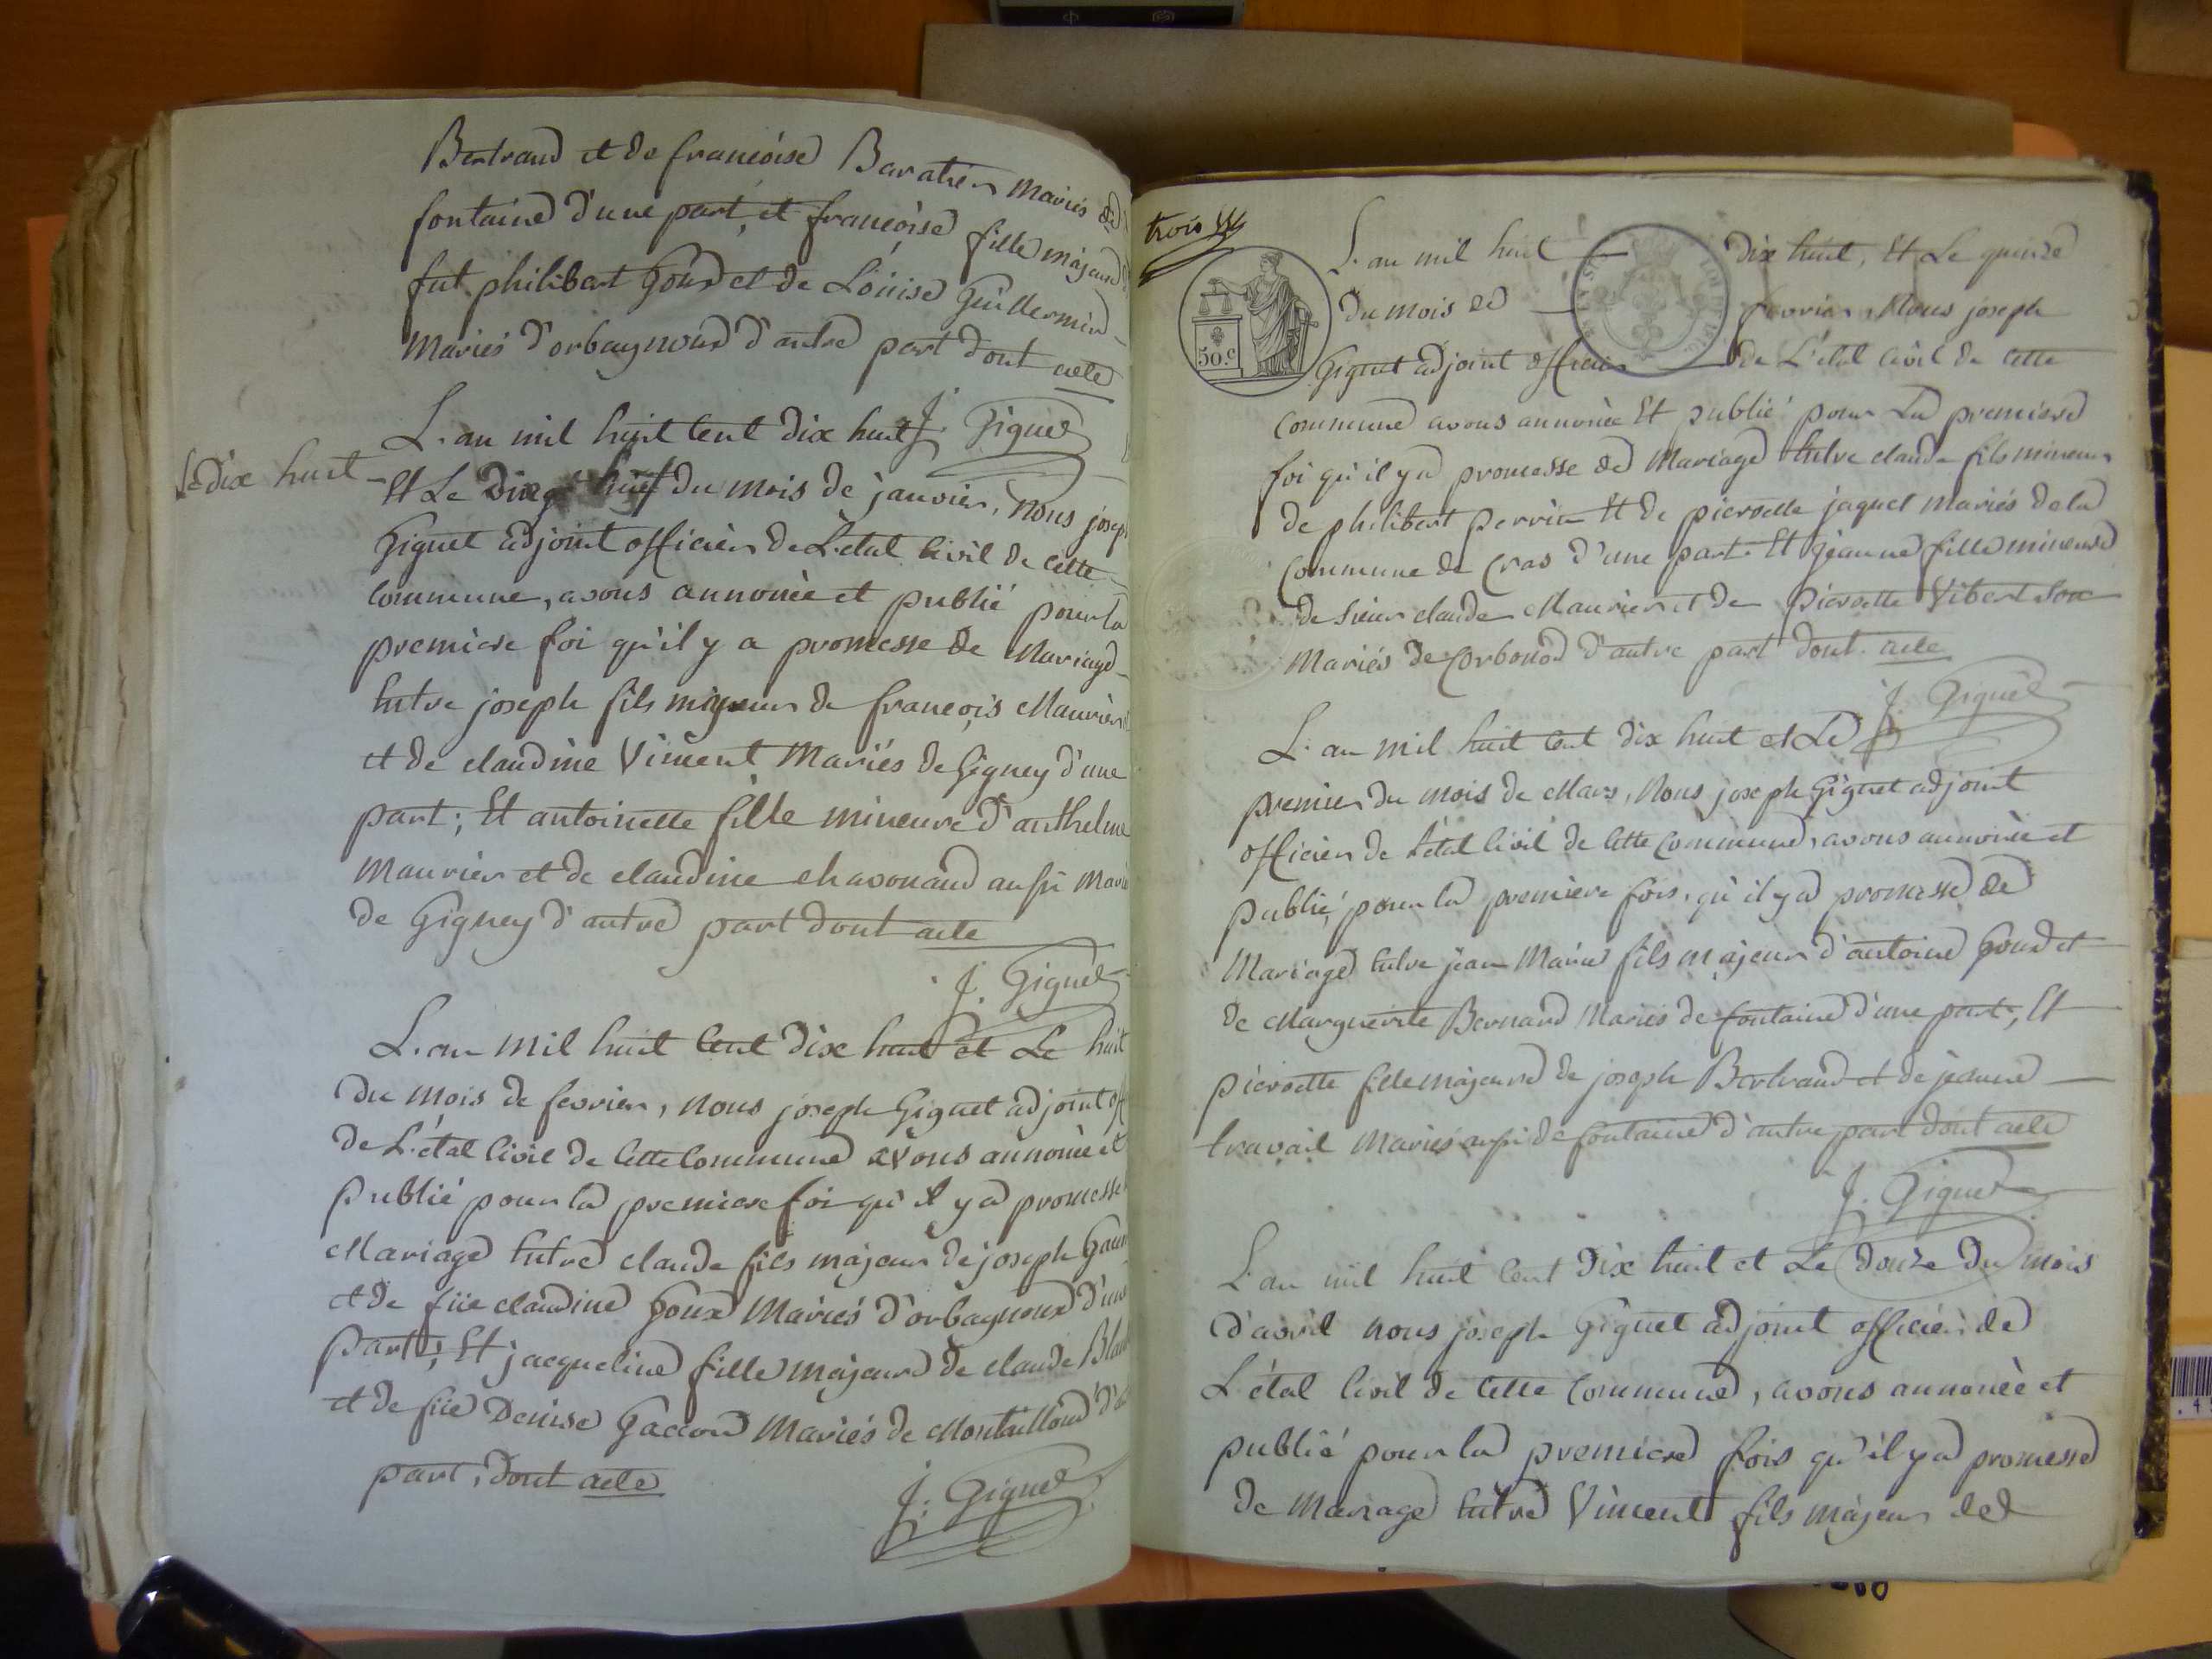 Bertrand et de francoise Baratier mariés de
fontaine d'une part, et francoise fille majeure
fut philibert Goux et de Loüise Guillermin
mariés d'orbagnoux d'autre part dont acte
J. Giguet
L'an mil huit cent dix huit
le dix huit
Et Le Dix huit du mois de janvier, Nous joseph
Giguet adjoint officier de L'etat Civil de cette
commune, avons annoncé et publié pour la
premiere foi qu'il y a promesse de Mariage
entre joseph fils mineur de francois Maurier
et de claudine Vincent Mariés de Gigney d'une
part; Et antoinette fille mineure d'anthelme
Maurier et de claudine chavonand aussi Mariés
de Gigney d'autre part dont acte
J. Giguet
L'an mil huit cent dix huit et Le huit
du mois de fevrier, nous joseph Giguet adjoint off
de L'état Civil de cette Commune avons annoncé et
publié pour la premiere foi qu'il y a promesse
Mariage entre claude fils majeur de joseph
et de füe claudine Goux Mariés d'orbagnoux d'une
part; Et jacqueline fille majeure de claude
et de füe Denise Gaccon Mariés de Montailloud
part, dont acte
J. Giguet
trois
50.c
L'an mil huit dix huit, Et Le quinze
du mois de fevrier, Nous joseph
Giguet adjoint officier de L'état civil de cette
commune avons annoncé Et publié pour La premiere
foi qu'il y a promesse de Mariage entre claude fils mineur
de philibert perrier Et de pierrette jaquet mariés de la
Commune de Cras d'une part Et jeanne fille mineure
de sieur claude Maurier et de pierrette Vibert
Mariés de Corbonod d'autre part dont acte
J. Giguet
L'an mil huit cent dix huit et Le
premier du mois de Mars, Nous joseph Giguet adjoint
officier de L'état civil de cette Commune, avons annoncé et
publié, pour la premiere fois, qu'il y a promesse de
Mariage entre jean Marie fils majeur d'antoine Goux et
de Marguerite Bernard Mariés de fontaine d'une part, Et
pierrette fille majeure de joseph Bertrand et de jeanne
travail Mariés aussi de fontaine d'autre part dont acte
J. Giguet
L'an mil huit cent Dix huit et Le Douze Du mois
d'avril nous joseph Giguet adjoint officier de
L'état civil de cette commune, avons annoncé et
publié pour la premiere fois qu'il y a promesse
de Mariage entre Vincent fils majeur de